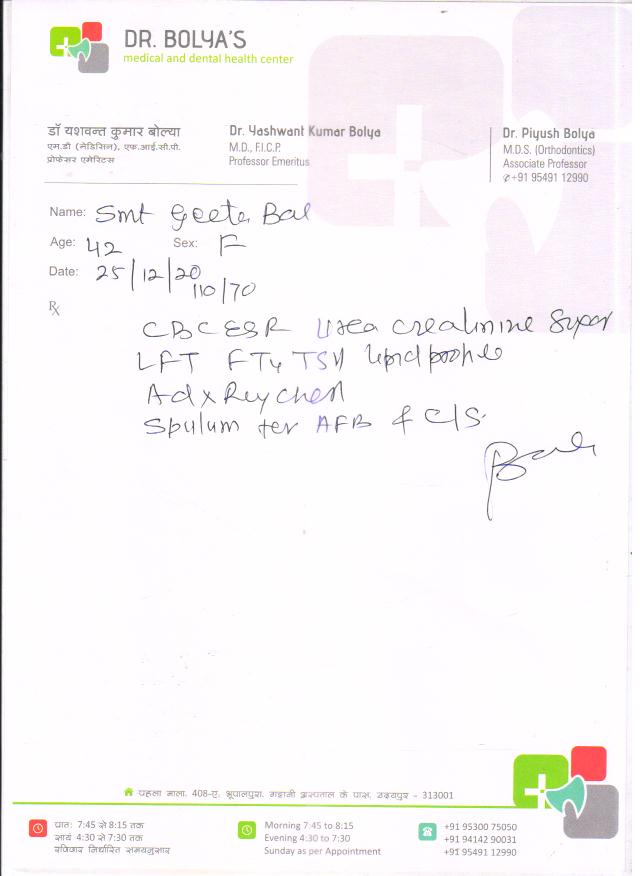 DR. BOLYA'S
medical and dental health center
डॉ यशवन्त कुमार बोल्या
एम.डी (मेडिसिन), एफ.आई.सी.पी.
प्रोफेसर एमेरिटस
Dr. Yashwant Kumar Bolya
M.D., F.I.C.P.
Professor Emeritus
Dr. Piyush Bolya
M.D.S. (Orthodontics)
Associate Professor
+91 95491 12990
Name: Smt Geeta Bai
Age: 42 Sex: F
Date: 25/12/20
110/70
℞
CBC ESR Urea creatinine Sugar
LFT FT4 TSH lipid profile
Adv X Ray Chest
Sputum for AFB & C/S.
पहला माला, 408-ए, भूपालपुरा, गट्टानी अस्पताल के पास, उदयपुर - 313001
प्रातः 7:45 से 8:15 तक
सायं 4:30 से 7:30 तक
रविवार निर्धारित समयनुसार
Morning 7:45 to 8:15
Evening 4:30 to 7:30
Sunday as per Appointment
+91 95300 75050
+91 94142 90031
+91 95491 12990